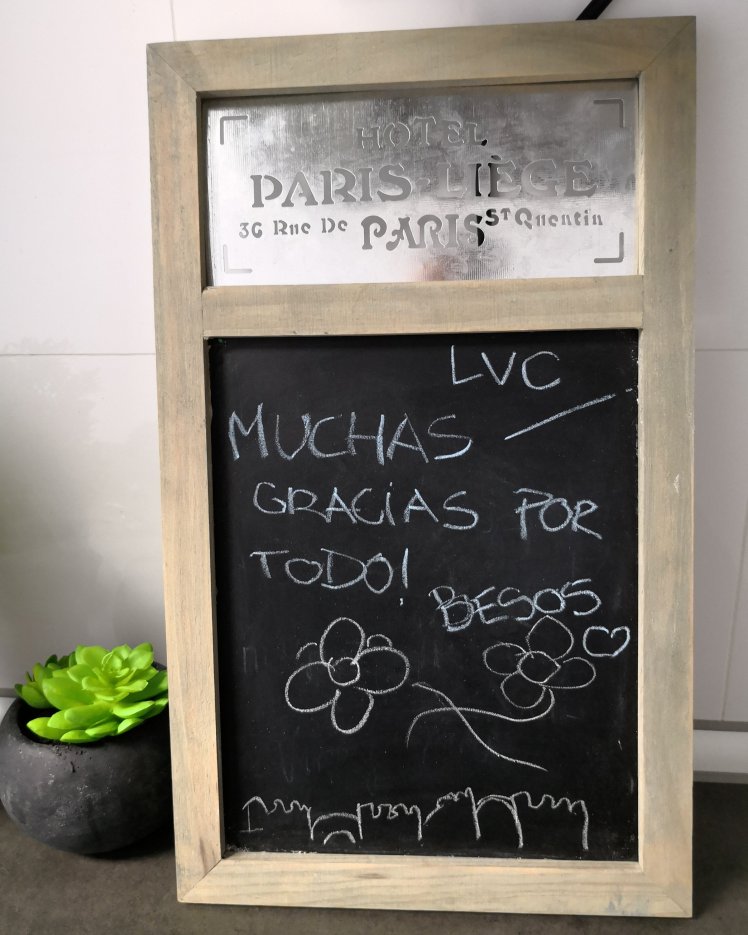 HOTEL
PARIS-LIÈGE
36 Rue De PARIS ST Quentin
LVC
MUCHAS
GRACIAS POR
TODO!
BESOS